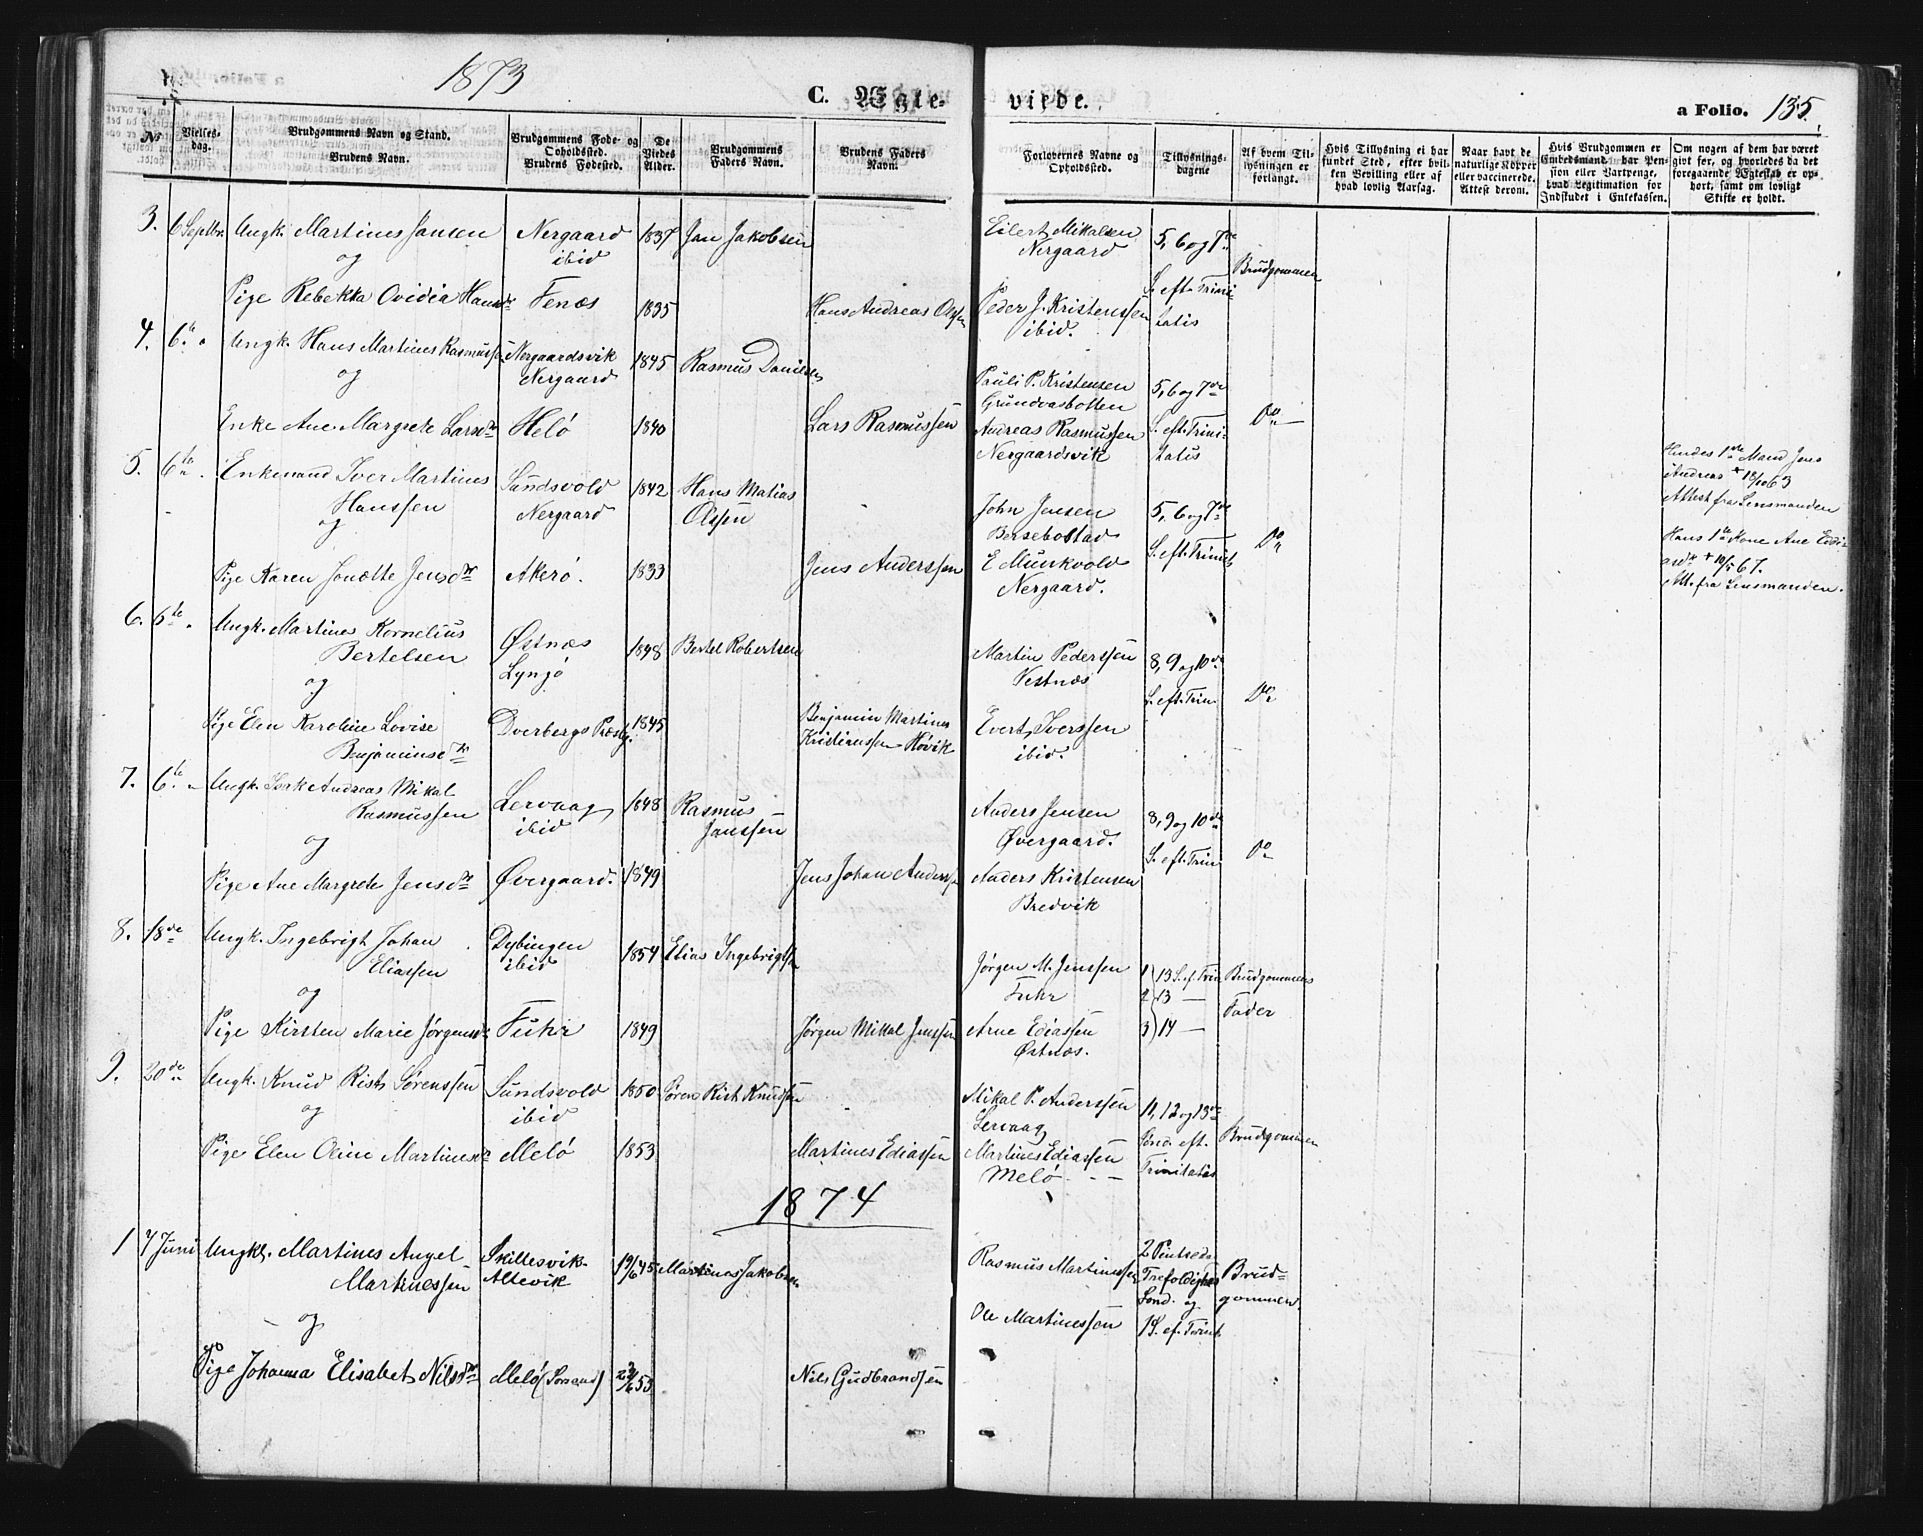 1873
C. Ægte-
viede.
a Folio. 135.
No
Vielses-
dag.
Brudgommens Navn og Stand.
Brudens Navn.
Brudgommens Føde- og
Opholdssted.
Brudens Fødested.
De
Viedes
Alder.
Brudgommens
Faders Navn.
Brudens Faders
Navn.
Forlovernes Navne og
Opholdssted.
Tillysnings-
dagene
Af hvem Til-
lysningen er
forlangt.
Hvis Tillysning ei har
fundet Sted, efter hvil-
ken Bevilling eller af
hvad lovlig Aarsag.
Naar havt de
naturlige Kopper
eller vaccinerede.
Attest derom.
Hvis Brudgommen er
Embedsmand, har Pen-
sion eller Vartpenge,
hvad Legitimation for
Indskudet i Enkekassen.
Om nogen af dem har været
givt før, og hvorledes da det
foregaaende Ægteskab er op-
hørt, samt om lovligt
Skifte er holdt.
3. 6 Septbr. Ungk. Martines Jansen Nergaard 1837 Jan Jakobsen Eilert Mikalsen 5, 6 og 7de
og ibid Nergaard Brudgommen
S. eft. Trini-
Pige Rebekka Ovidia Hansdr Fenæs 1835 Hans Andreas Olsen Peder J. Kristenssen tatis
ibid.
4. 6te Ungk. Hans Martines Rasmussen Nergaardsvik 1845 Rasmus Danielsen
og Nergaard Pauli P. Kristensen 5, 6 og 7de
Grundvasbotten
Enke Ane Margrete Larsdr Helø 1840 Lars Rasmussen Andreas Rasmussen S. eft. Trini- Do
Nergaardsvik tatis
5. 6te Enkemand Iver Martines Sundsvold 1842 Hans Matias Hendes 1ste Mand Jens
Hanssen Nergaard Olssen John Jensen 5, 6 og 7de Andreas
og Bersebostad Attest fra Lensmanden
E Munkvold S. eft. Trinit. Do Hans 1ste Kone Ane
Pige Karen Jonette Jensdr Akerø. 1833 Jens Anderssen Nergaard. Att. fra Lensmanden.
6. 6te Ungk. Martines Kornelius Østnæs 1848 Bertel Robertsen
Bertelsen Lyngø Martin Pederssen 8, 9 og 10de
og Vestnæs S. eft. Trin. Do
Pige Elen Karoline Lovise Dverbergs Præstg. 1845 Benjamin Martines Evert Iverssen
Benjaminsdr Kristianssen Høvik ibid.
7. 6te Ungk. Isak Andreas Mikal Lervaag 1848 Rasmus
Rasmussen ibid Janssen Anders Jensen 8, 9 og 10de
og Øvergaard. S. eft. Trin. Do
Pige Ane Margrete Jensdr Øvergaard. 1849 Jens Johan Anderssen Anders Kristensen
Bredvik
8. 18de Ungk. Ingebrigt Johan Dybingen 1854 Elias Ingebrigtsen
Eliassen ibid Jørgen M. Jenssen 1) 13 S. ef. Trin Brudgommens
og Fuhr 2) 13 — Fader
Pige Kirsten Marie Jørgensdr Fuhr 1849 Jørgen Mikal Jenssen Arne Ediassen 3) 14 —
Østnæs.
9. 20de Ungk. Knud Rist Sørenssen Sundsvold 1850 Søren Rist Knudsen Mikal P. Anderssen 11, 12 og 13de
og ibid Lervaag Sønd. eft. Brudgommen
Pige Elen Oline Martinesdr Melø 1853 Martines Ediassen Martines Ediassen Trinitatis
Melø
1874
1 7 Juni Ungk. Martines Angel Skillesvik 19/6 45 Martines Jakobsen Rasmus Martinessen 2 Pintsed.
Martinessen Altevik Trefoldigheds Brud-
og Sønd. og gommen.
Ole Martinessen 1 S. ef. Trinit.
Pige Johanna Elisabet Nilsdr Melø 53 Nils Gudbrandsen